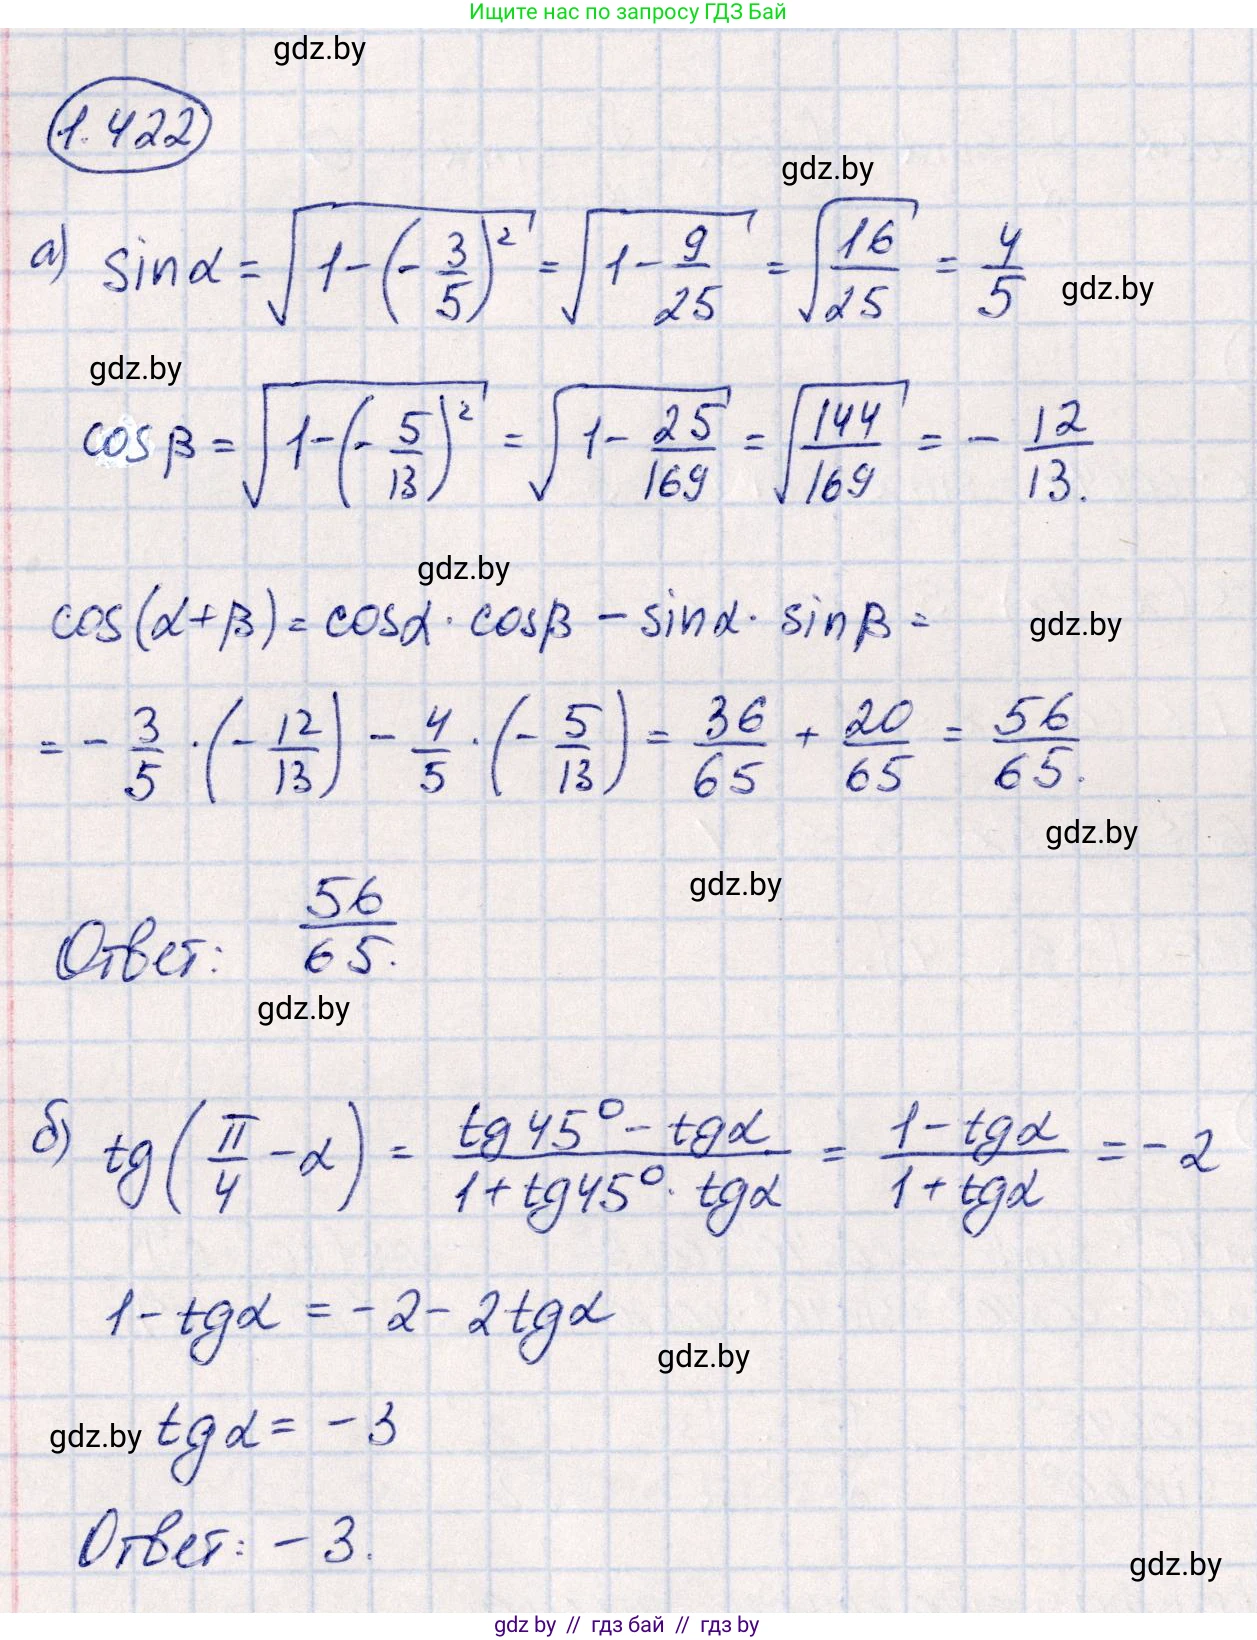 Ищите нас по запросу ГДЗ Бай
gdz.by
1.422
gdz.by
а) sinα = √(1-(-3/5)²) = √(1-9/25) = √(16/25) = 4/5
gdz.by
gdz.by
cosβ = √(1-(-5/13)²) = √(1-25/169) = √(144/169) = -12/13.
gdz.by
cos(α+β) = cosα · cosβ - sinα · sinβ =
gdz.by
= -3/5 · (-12/13) - 4/5 · (-5/13) = 36/65 + 20/65 = 56/65.
gdz.by
gdz.by
Ответ: 56/65.
gdz.by
б) tg(π/4 - α) = (tg45° - tgα)/(1+tg45° · tgα) = (1-tgα)/(1+tgα) = -2
1-tgα = -2-2tgα
gdz.by
gdz.by
tgα = -3
Ответ: -3.
gdz.by
gdz by // гдз бай // gdz by